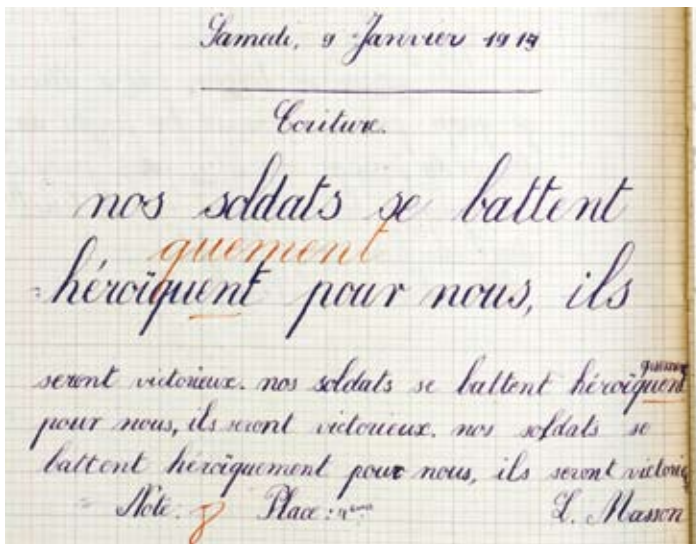 Samedi, 9 Janvier 1915
Ecriture.
nos soldats se battent
quement
héroïquent pour nous, ils
quement
seront victorieux. nos soldats se battent héroïquent
pour nous, ils seront victorieux. nos soldats se
battent héroïquement pour nous, ils seront victorie
Note: 8 Place: L. Masson